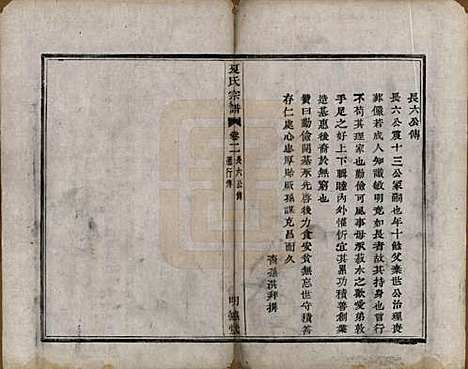 長六公傳
長六公震十三公冢嗣也年十餘父棄世公治理喪
葬儼若成人知識敏明克如長者故其持身也曾行
不苟其理家也勤儉可風事母承菽水之歡愛弟敦
手足之好上下輯睦內外懽忻宜其累功積善創業
造基惠後裔於無窮也
贊曰勤儉開基承先啓後力食安貧無忘世守積善
存仁處心忠厚貽厥孫謀克昌而久
裔孫洪拜撰
夏氏宗譜
卷二
長六公傳
明德堂